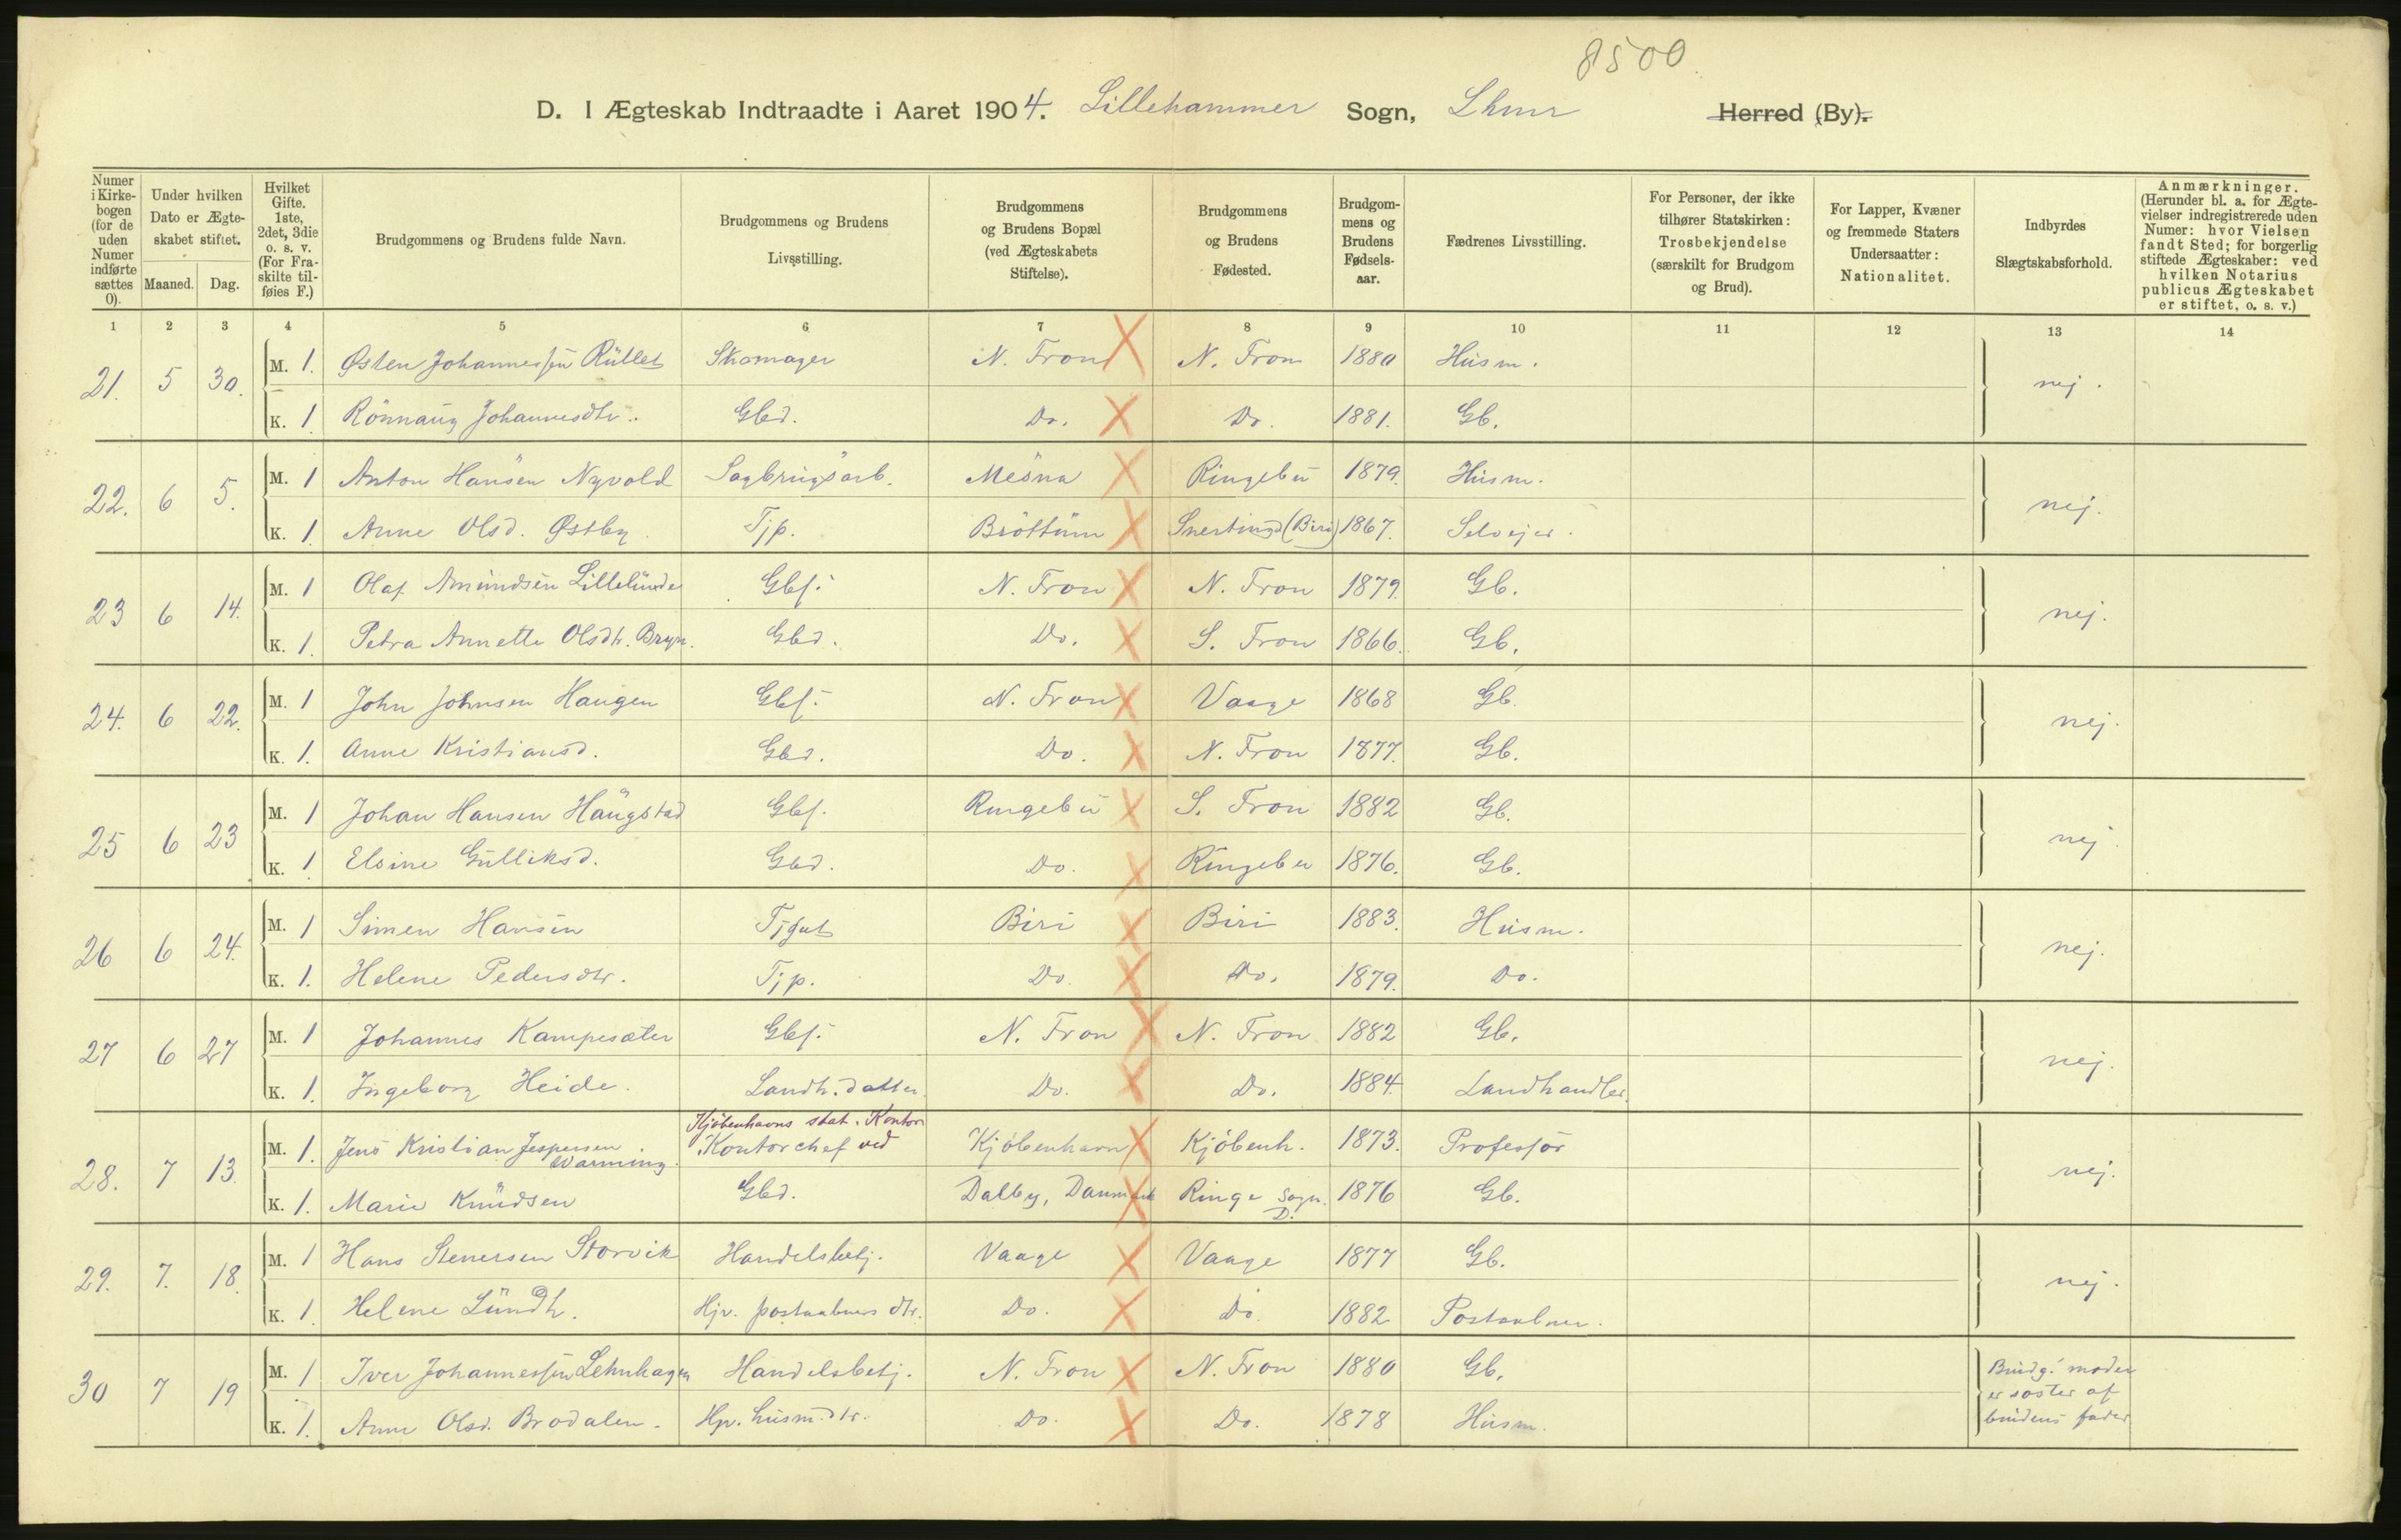 8500
D. I Ægteskab Indtraadte i Aaret 1904. Lillehammer Sogn, Lhmr Herred (By).
Numer i Kirke-bogen (for de uden Numer indførte sættes 0). Under hvilken Dato er Ægte-skabet stiftet. Maaned. Dag. Hvilket Gifte. 1ste, 2det, 3die o. s. v. (For Fra-skilte til-føies F.) Brudgommens og Brudens fulde Navn. Brudgommens og Brudens Livsstilling. Brudgommens og Brudens Bopæl (ved Ægteskabets Stiftelse). Brudgommens og Brudens Fødested. Brudgom-mens og Brudens Fødsels-aar. Fædrenes Livsstilling. For Personer, der ikke tilhører Statskirken: Trosbekjendelse (særskilt for Brudgom og Brud). For Lapper, Kvæner og fremmede Staters Undersaatter: Nationalitet. Indbyrdes Slægtskabsforhold. Anmærkninger. (Herunder bl. a. for Ægte-vielser indregistrerede uden Numer: hvor Vielsen fandt Sted; for borgerlig stiftede Ægteskaber: ved hvilken Notarius publicus Ægteskabet er stiftet, o. s. v.)
1 2 3 4 5 6 7 8 9 10 11 12 13 14
21. 5 30. M. 1. Østen Johannessen Rullet Skomager N. Fron N. Fron 1880 Husm. nej.
K. 1. Rönnaug Johannesdtr. Gbd. Do. Do. 1881. Gb.
22. 6 5. M. 1 Anton Hansen Nyvold Sagbrugsarb. Mesna Ringebu 1879. Husm. nej.
K. 1. Anne Olsd. Østby Tjp. Bröttum Snertingd (Biri) 1867. Selvejer.
23 6 14. M. 1 Olaf Amundsen Lillelunde Gbs. N. Fron N. Fron 1879. Gb. nej.
K. 1. Petra Annette Olsdtr. Bryn. Gbd. Do. S. Fron 1866. Gb.
24. 6 22. M. 1 John Johnsen Haugen Gbs. N. Fron Vaage 1868 Gb. nej.
K. 1. Anne Kristiansd. Gbd. Do. N. Fron 1877. Gb.
25 6 23 M. 1 Johan Hansen Haugstad Gbs. Ringebu S. Fron 1882 Gb. nej.
K. 1. Elsine Gulliksd. Gbd. Do. Ringebu 1876. Gb.
26 6 24. M. 1 Simen Hansen Tjgut Biri Biri 1883. Husm. nej.
K. 1. Helene Pedersdtr. Tjp. Do. Do. 1879. Do.
27 6 27 M. 1 Johannes Kampesæter Gbs. N. Fron N. Fron 1882 Gb. nej.
K. 1. Ingeborg Heide. Landh. datter. Do. Do. 1884. Landhandler.
Kjøbenhavns stat. Kontor
28. 7 13. M. 1. Jens Kristian Jespersen Warming. Kontorchef ved Kjöbenhavn Kjöbenh. 1873. Professor nej.
K. 1. Marie Knudsen Gbd. Dalby, Danmark Ringe Sogn. D. 1876 Gb.
29. 7. 18. M. 1 Hans Stenersen Storvik Handelsbetj. Vaage Vaage 1877 Gb. nej.
K. 1. Helene Lundh. Hjv. postaabners dtr. Do. Do. 1882 Postaabner.
30 7 19 M. 1 Iver Johannessen Lehnhagen Handelsbetj. N. Fron N. Fron 1880 Gb. Brudg. moder er søster af brudens fader
K. 1. Anne Olsd. Brodalen. Hjv. husm. dtr. Do. Do. 1878 Husm.